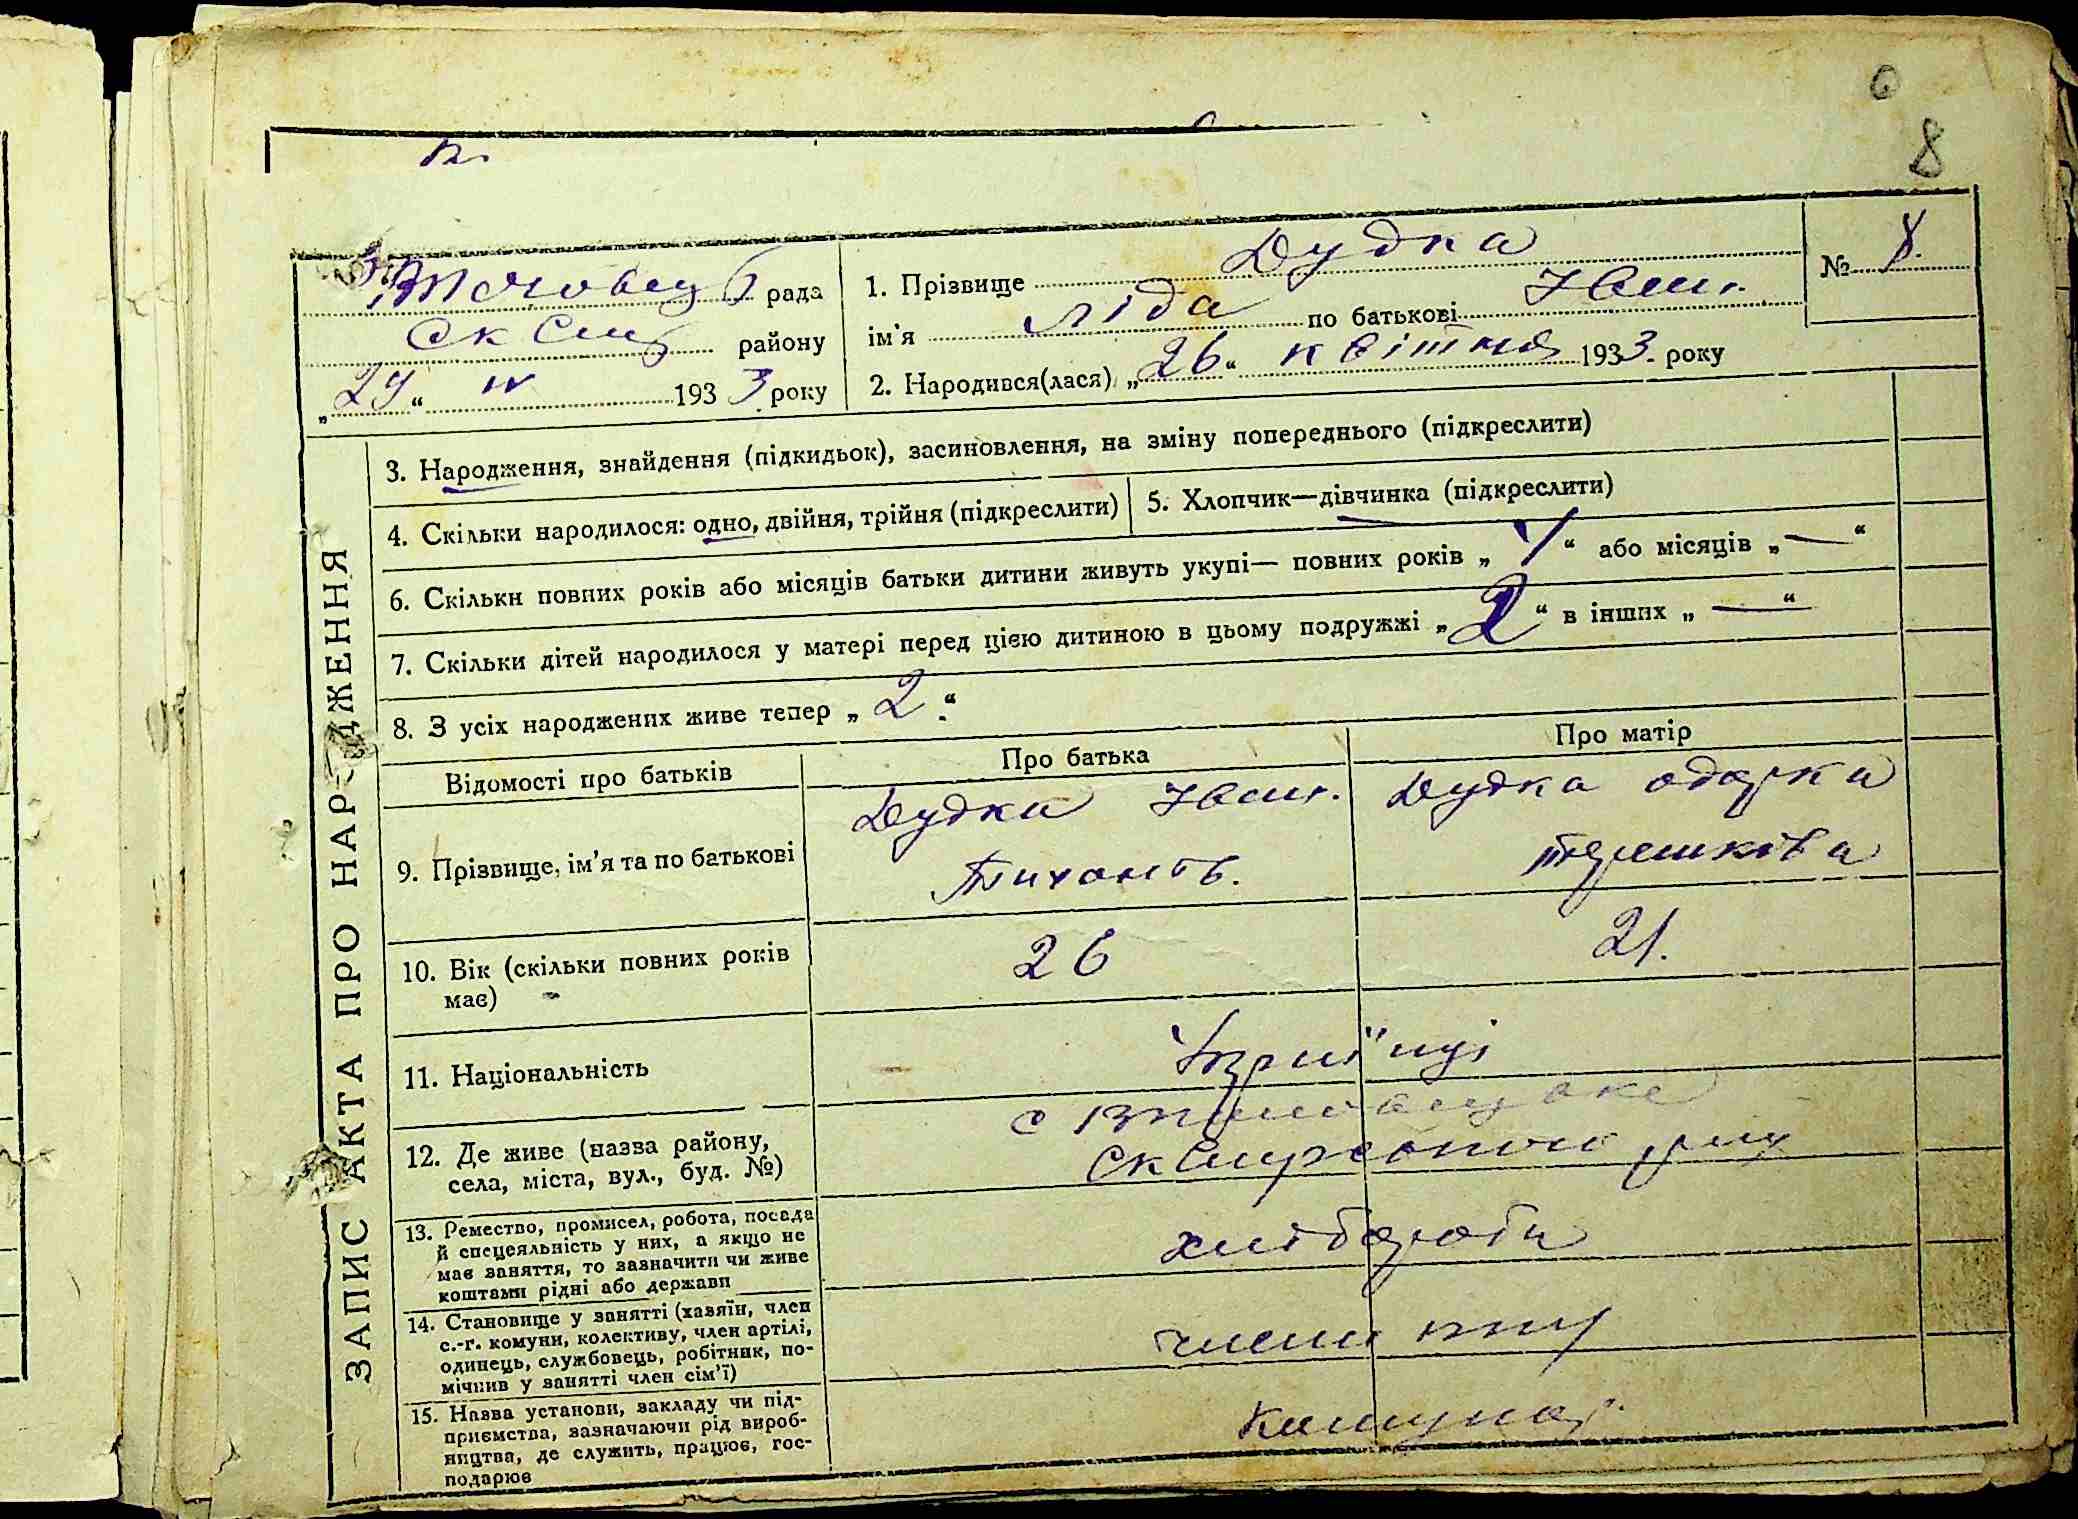 6
8
рада
1. Прізвище Дудка
№ 8
ім'я Ліда по батькові Іван.
району
„29“ IV 1933 року
2. Народився(лася) „26“ квітня 1933. року
ЗАПИС АКТА ПРО НАРОДЖЕННЯ
3. Народження, знайдення (підкидьок), засиновлення, на зміну попереднього (підкреслити)
4. Скільки народилося: одно, двійня, трійня (підкреслити)
5. Хлопчик—дівчинка (підкреслити)
6. Скільки повних років або місяців батьки дитини живуть укупі— повних років „ “ або місяців „—“
7. Скільки дітей народилося у матері перед цією дитиною в цьому подружжі „2“ в інших „—“
8. З усіх народжених живе тепер „2“
Відомості про батьків
Про батька
Про матір
9. Прізвище, ім'я та по батькові
Дудка Іван.
Тихонів.
Дудка Одарка
Терешківа
10. Вік (скільки повних років
має)
26
21.
11. Національність
Украінці
12. Де живе (назва району,
села, міста, вул., буд. №)
с
Сквирського рну
13. Ремество, промисел, робота, посада
й спецеяльність у них, а якщо не
має заняття, то зазначити чи живе
коштами рідні або держави
хлібороби
14. Становище у занятті (хазяїн, член
с.-г. комуни, колективу, член артілі,
одинець, службовець, робітник, по-
мічнив у занятті член сім'ї)
члени
15. Назва установи, закладу чи під-
приємства, зазначаючи рід вироб-
ництва, де служить, працює, гос-
подарює